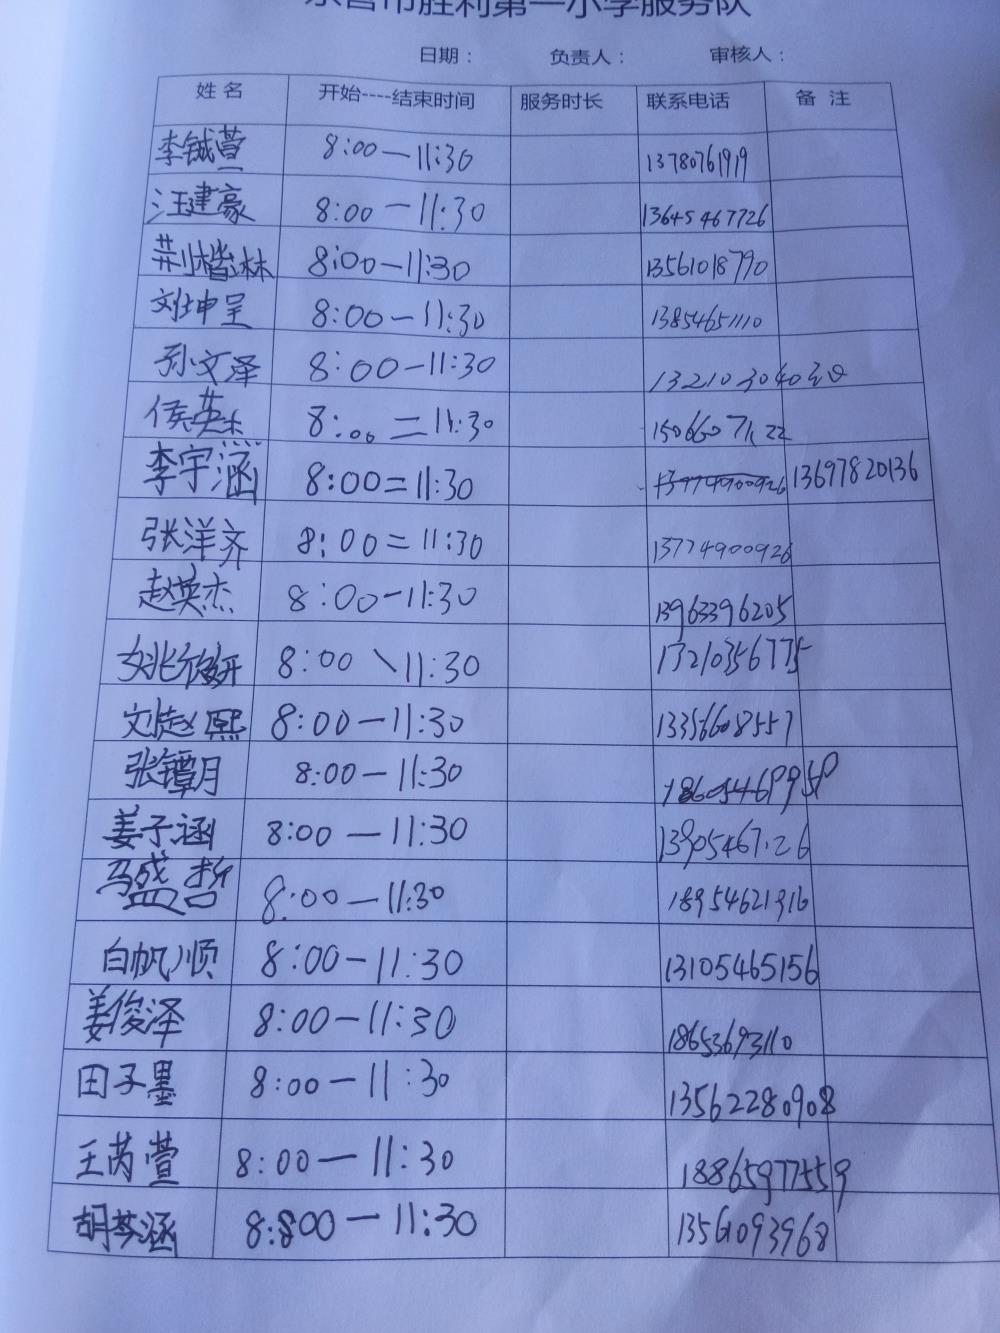 东营市胜利第一小学服务队
日期： 负责人： 审核人：
姓名 开始----结束时间 服务时长 联系电话 备注
李铖萱 8:00—11:30 13780761919
汪建豪 8:00—11:30 13645467726
荆楷林 8:00—11:30 13561018790
刘坤呈 8:00—11:30 13854651110
孙文泽 8:00—11:30
侯英杰 8:00—11:30
李宇涵 8:00=11:30 13774900926 13697820136
张洋齐 8:00=11:30 13774900926
赵英杰 8:00—11:30 13963396205
姚欣妍 8:00 \ 11:30 13210356775
8:00—11:30 13356608557
张镡月 8:00—11:30
姜子涵 8:00—11:30
马盛哲 8:00—11:30 18954621316
白帆顺 8:00—11:30 13105465156
姜俊泽 8:00—11:30 18653693110
田子墨 8:00—11:30 13562280908
王芮萱 8:00—11:30 18865977559
胡芩涵 8:800—11:30 13561093968